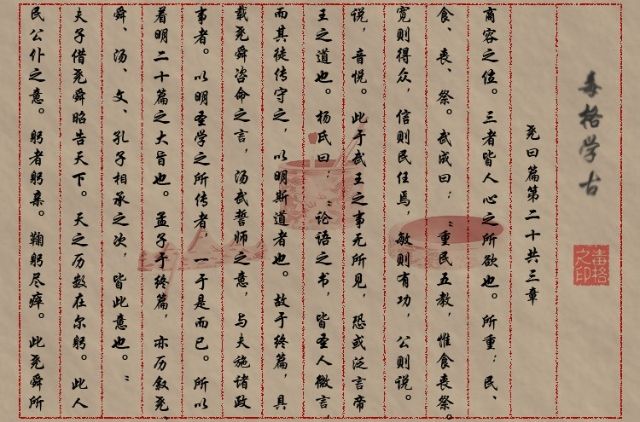 寿格学古
寿格之印
尧曰篇第二十共三章
商容之位。三者皆人心之所欲也。所重：民、
食、丧、祭。武成曰：“重民五教，惟食丧祭。
宽则得众，信则民任焉，敏则有功，公则说。
说，音悦。此于武王之事无所见，恐或泛言帝
王之道也。杨氏曰：“论语之书，皆圣人微言，
而其徒传守之，以明斯道者也。故于终篇，具
载尧舜咨命之言，汤武誓师之意，与夫施诸政
事者。以明圣学之所传者，一于是而已。所以
着明二十篇之大旨也。孟子于终篇，亦历叙尧、
舜、汤、文、孔子相承之次，皆此意也。”
夫子借尧舜昭告天下。天之历数在尔躬。此人
民公仆之意。躬者躬亲。鞠躬尽瘁。此尧舜所